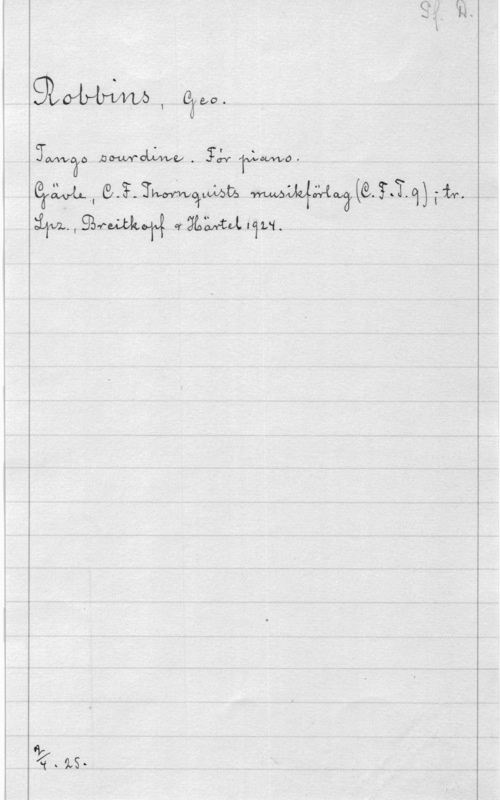 Sf. D.
Robbins, Geo.
Tango sourdine. För piano.
Gävle, C. F. Thornquists musikförlag (C.F.T. 9); tr.
Lpz., Breitkopf & Härtel 1924.
2/4. 25.